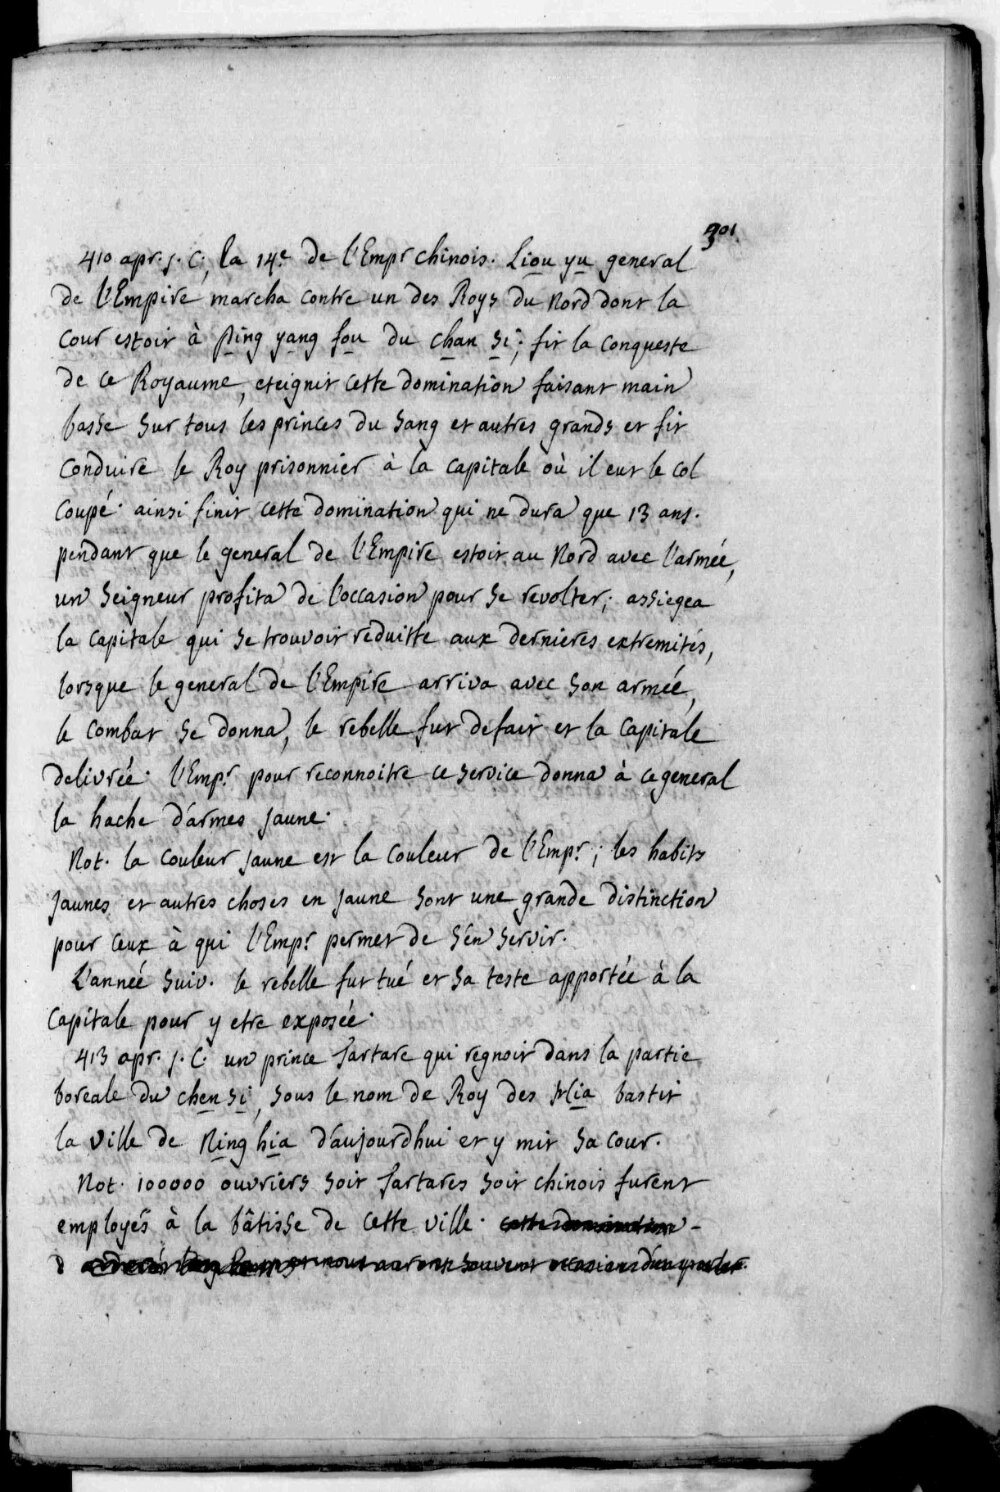 301.
410 apr. j. C., la 14.e de l'Emp.r chinois. Liou yu general
de l'Empire marcha contre un des Roys du Nord dont la
cour estoit à Ping yang fou du chan si; fit la conqueste
de ce Royaume, eteignit cette domination faisant main
basse sur tous les princes du sang et autres grands et fit
conduire le Roy prisonnier à la capitale où il eut le col
coupé. ainsi finit cette domination qui ne dura que 13 ans.
pendant que le general de l'Empire estoit au Nord avec l'armée,
un seigneur profita de l'occasion pour se revolter; assiegea
la capitale qui se trouvoit reduitte aux dernieres extremités,
lorsque le general de l'Empire arriva avec son armée,
le combat se donna, le rebelle fut defait et la capitale
delivrée. l'Emp.r pour reconnoitre ce service donna à ce general
la hache d'armes jaune.
Not. la couleur jaune est la couleur de l'Emp.r; les habits
jaunes et autres choses en jaune sont une grande distinction
pour ceux à qui l'Emp.r permet de s'en servir.
L'année suiv. le rebelle fut tué et sa teste apportée à la
capitale pour y etre exposée.
413 apr. j. C. un prince tartare qui regnoit dans la partie
boreale du chen si, sous le nom de Roy des hia bastit
la ville de Ning hia d'aujourdhui et y mit sa cour.
Not. 100000 ouvriers soit tartares soit chinois furent
employés à la bâtisse de cette ville. cette domination
nous aurons souvent occasions d'en parler.